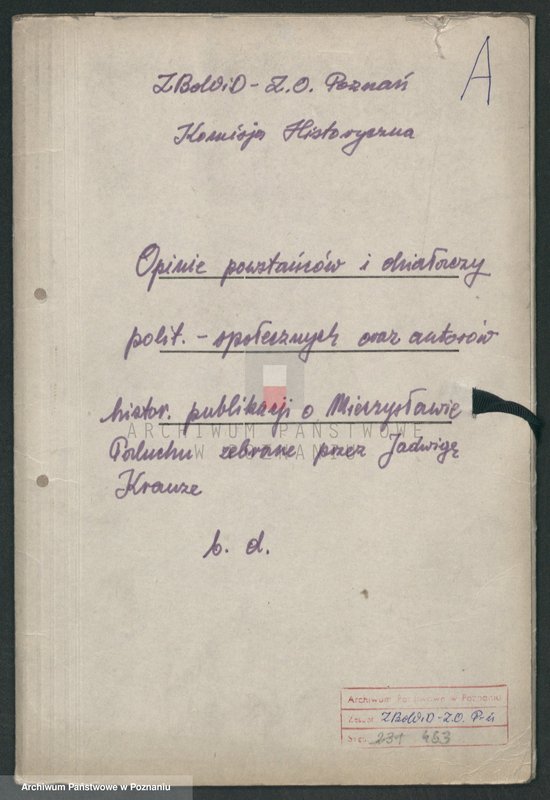 A
ZBoWiD - Z.O. Poznań
Komisja Historyczna
Opinie powstańców i działaczy
polit. - społecznych oraz autorów
histor. publikacji o Mieczysławie
ARCHIWUM PAŃSTWOWE
Paluchu zebrane przez Jadwigę
W POZNANIU
Krauze
b. d.
Archiwum Państwowe w Poznaniu
Zespół ZBoWiD-Z.O. Pań
Sygn. 231 453
Archiwum Państwowe w Poznaniu